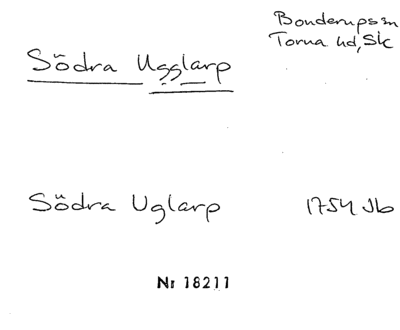 Bonderups sn
Torna hd, Sk
Södra Ugglarp
Södra Uglarp 1754 Jb
Nr 18211